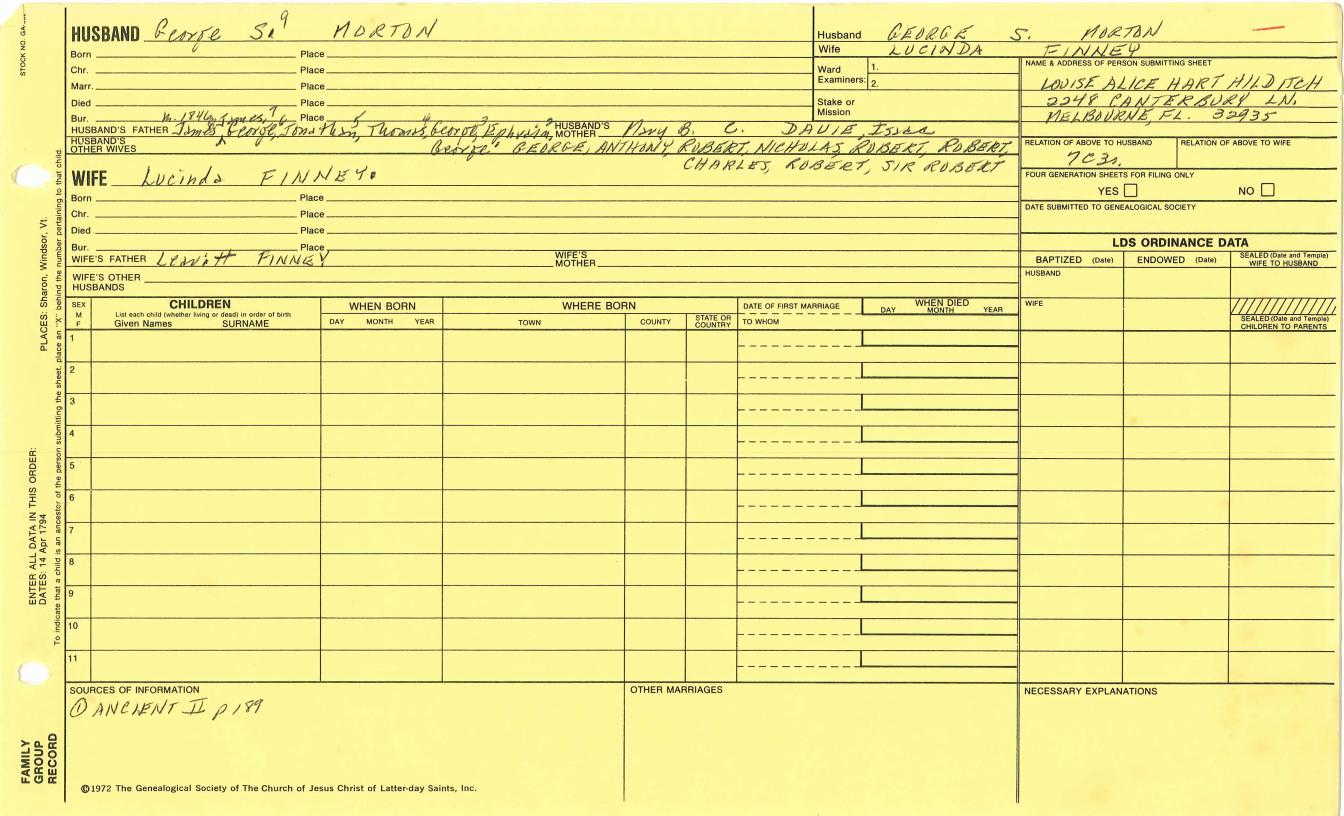 STOCK NO. GA-
HUSBAND George S.9 MORTON
Born Place
Chr. Place
Marr. Place
Died Place
Bur. Place
HUSBAND'S FATHER James, George, Jonathan, Thomas, George, Ephraim, HUSBAND'S MOTHER Mary B. C. DAVIE, Isaac
HUSBAND'S OTHER WIVES George' GEORGE, ANTHONY, ROBERT, NICHOLAS, ROBERT, ROBERT,
CHARLES, ROBERT, SIR ROBERT
WIFE Lucinda FINNEY.
Born Place
Chr. Place
Died Place
Bur. Place
WIFE'S FATHER Leavitt FINNEY WIFE'S MOTHER
WIFE'S OTHER HUSBANDS
Husband GEORGE S. MORTON
Wife LUCINDA FINNEY
Ward Examiners: 1.
2.
Stake or Mission
NAME & ADDRESS OF PERSON SUBMITTING SHEET
LOUISE ALICE HART HILDITCH
2248 CANTERBURY LN.
MELBOURNE, FL. 32935
RELATION OF ABOVE TO HUSBAND RELATION OF ABOVE TO WIFE
7C3r.
FOUR GENERATION SHEETS FOR FILING ONLY
YES NO
DATE SUBMITTED TO GENEALOGICAL SOCIETY
LDS ORDINANCE DATA
BAPTIZED (Date) ENDOWED (Date) SEALED (Date and Temple) WIFE TO HUSBAND
HUSBAND
WIFE
SEALED (Date and Temple) CHILDREN TO PARENTS
SEX M F
CHILDREN
List each child (whether living or dead) in order of birth
Given Names SURNAME
WHEN BORN
DAY MONTH YEAR
WHERE BORN
TOWN COUNTY STATE OR COUNTRY
DATE OF FIRST MARRIAGE
TO WHOM
WHEN DIED
DAY MONTH YEAR
1
2
3
4
5
6
7
8
9
10
11
SOURCES OF INFORMATION
① ANCIENT II p 189
OTHER MARRIAGES
NECESSARY EXPLANATIONS
©1972 The Genealogical Society of The Church of Jesus Christ of Latter-day Saints, Inc.
FAMILY GROUP RECORD
ENTER ALL DATA IN THIS ORDER:
DATES: 14 Apr 1794
PLACES: Sharon, Windsor, Vt.
To indicate that a child is an ancestor of the person submitting the sheet, place an "X" behind the number pertaining to that child.